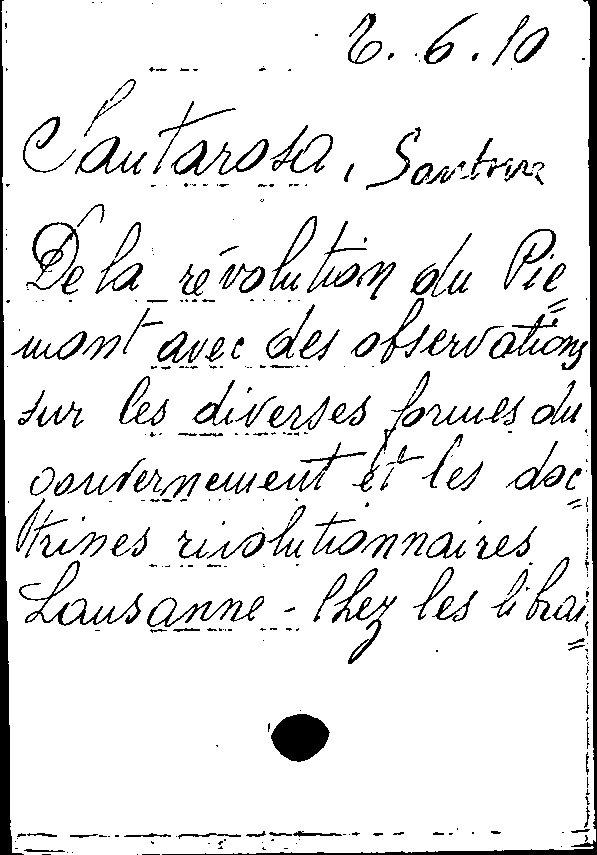 6.10
Santarosa, Santorre
De la révolution du Pie=
mont avec des observations
sur les diverses formes du
gouvernement et les doc=
trines rivolutionnaires
Lausanne - Chez les librai=